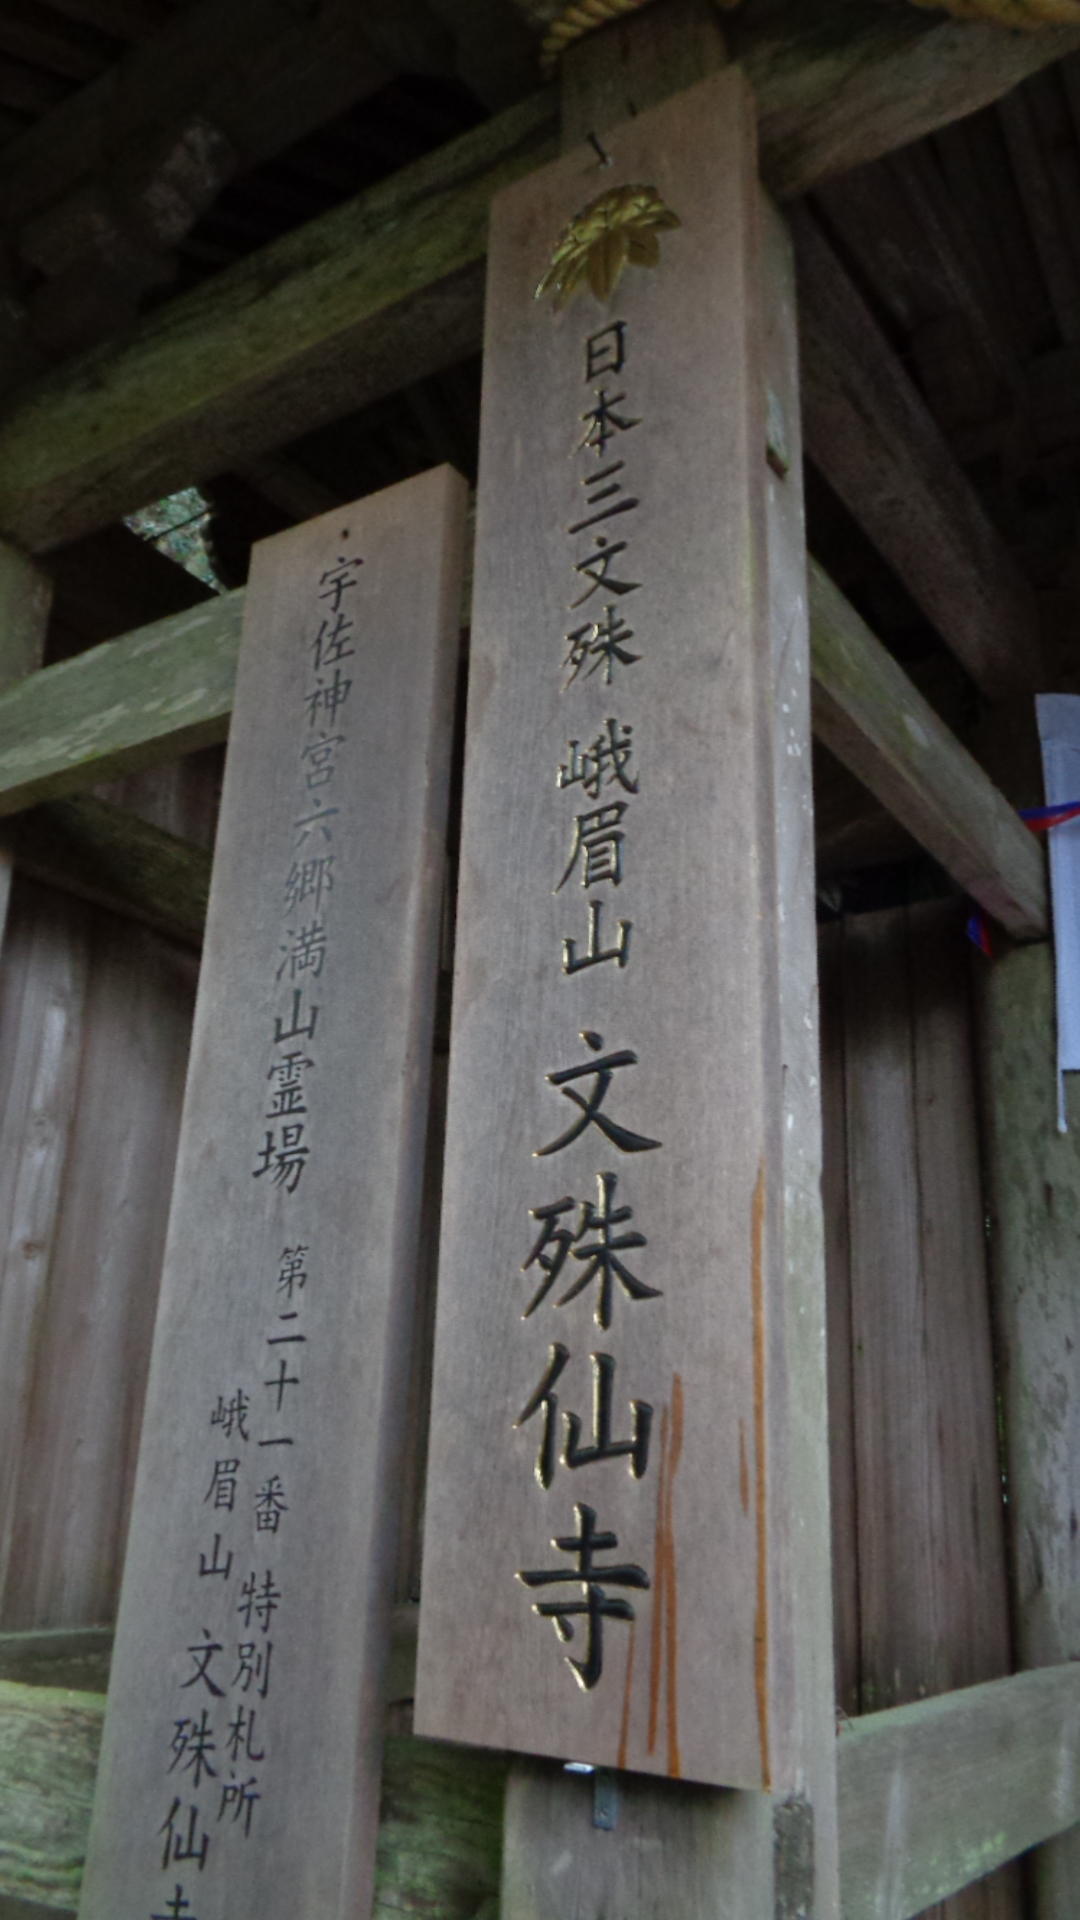 日本三文殊 峨眉山 文殊仙寺
宇佐神宮六郷満山霊場 第二十一番 特別札所
峨眉山 文殊仙寺